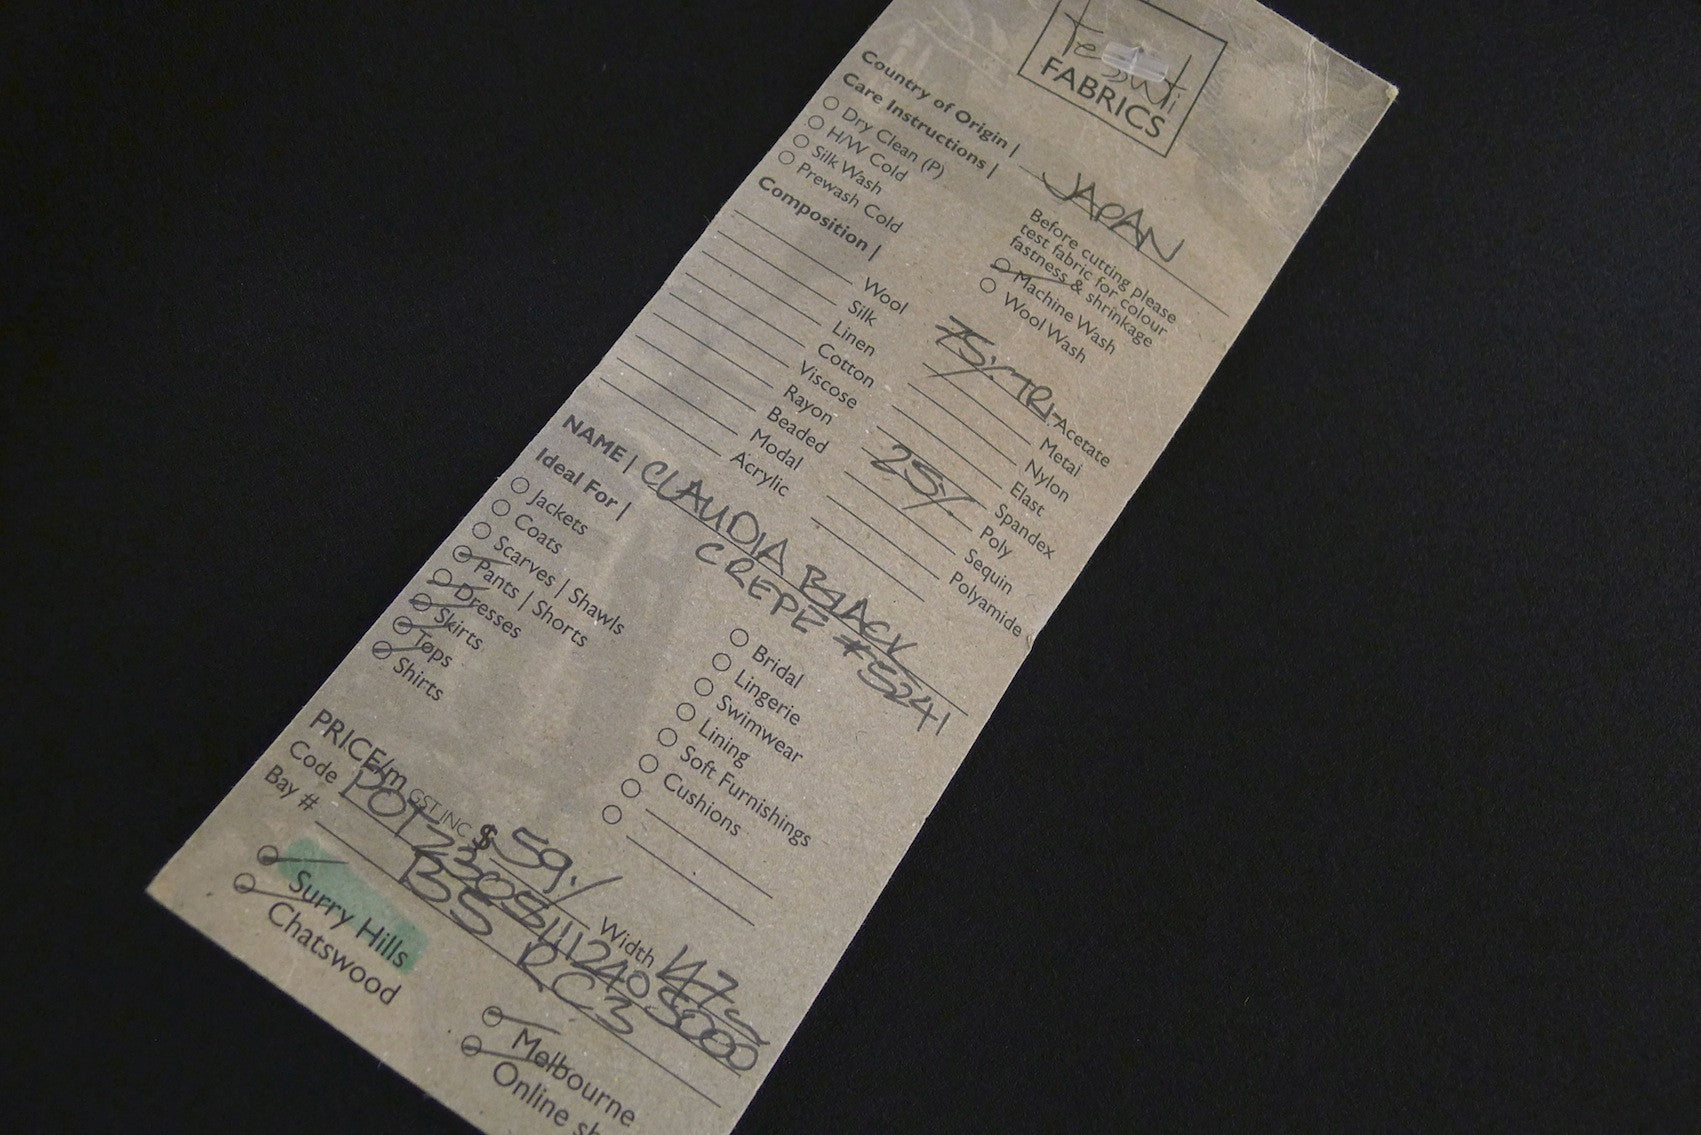 Tessuti
FABRICS
Country of Origin | JAPAN
Care Instructions |
Dry Clean (P)
H/W Cold
Silk Wash
Prewash Cold
Before cutting please
test fabric for colour
fastness & shrinkage
Machine Wash
Wool Wash
Composition |
Wool
Silk
Linen
Cotton
Viscose
Rayon
Beaded
Modal
Acrylic
75% TRI-Acetate
Metal
Nylon
Elast
Spandex
25% Poly
Sequin
Polyamide
NAME | CLAUDIA BLACK
CREPE #5241
Ideal For |
Jackets
Coats
Scarves | Shawls
Pants | Shorts
Dresses
Skirts
Tops
Shirts
Bridal
Lingerie
Swimwear
Lining
Soft Furnishings
Cushions
PRICE/m GST INC $59./ Width 147
Code
Bay # B5 RC3
Surry Hills
Chatswood
Melbourne
Online